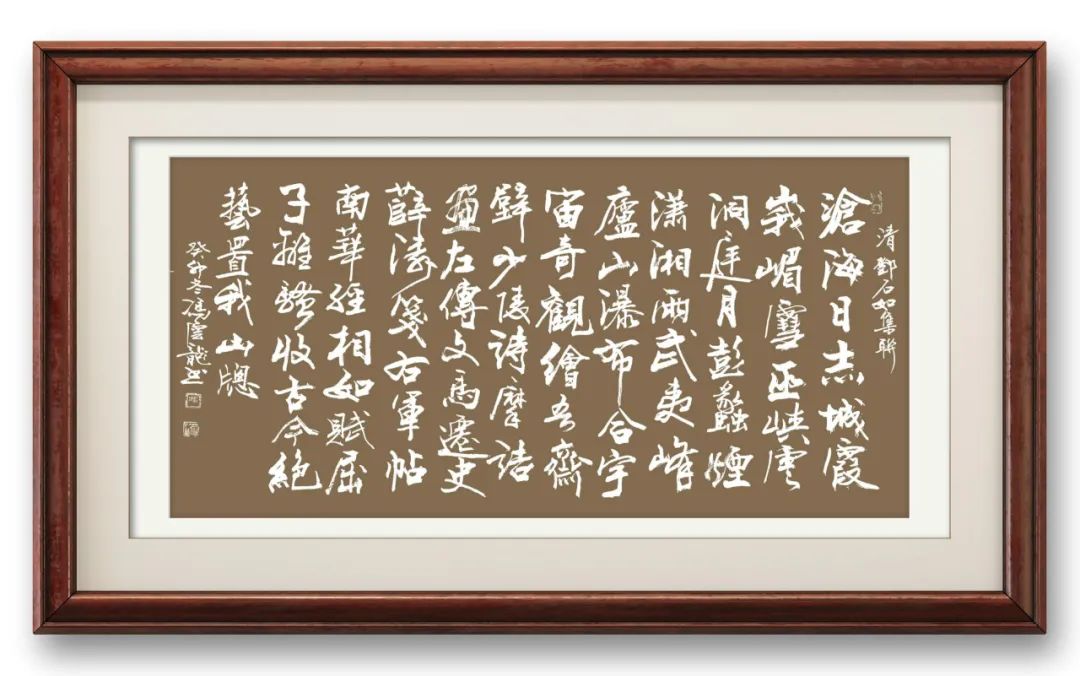 清鄧石如集聯
滄海日赤城霞
峩嵋雪巫峽雲
洞庭月彭蠡煙
瀟湘雨武夷峰
廬山瀑布合宇
宙奇觀繪吾齋
壁少陵詩摩詰
畫左傳文馬遷史
薛濤箋右軍帖
南華經相如賦屈
子離騷收古今絕
藝置我山牕
癸卯冬馮雲龍書